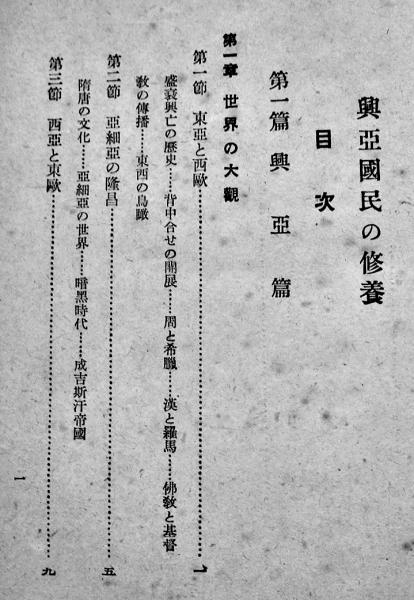 興亞國民の修養
目次
第一篇 興亞篇
第一章 世界の大觀
第一節 東亞と西歐……………………一
盛衰興亡の歷史……背中合せの開展……周と希臘……漢と羅馬……佛敎と基督
敎の傳播……東西の鳥瞰
第二節 亞細亞の隆昌……………………五
隋唐の文化……亞細亞の世界……暗黑時代……成吉斯汗帝國
第三節 西亞と東歐……………………九
一